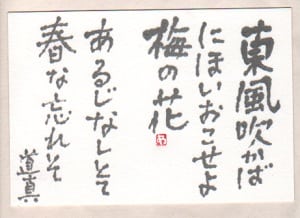 東風吹かば
にほいおこせよ
梅の花
あるじなしとて
春な忘れそ
道真